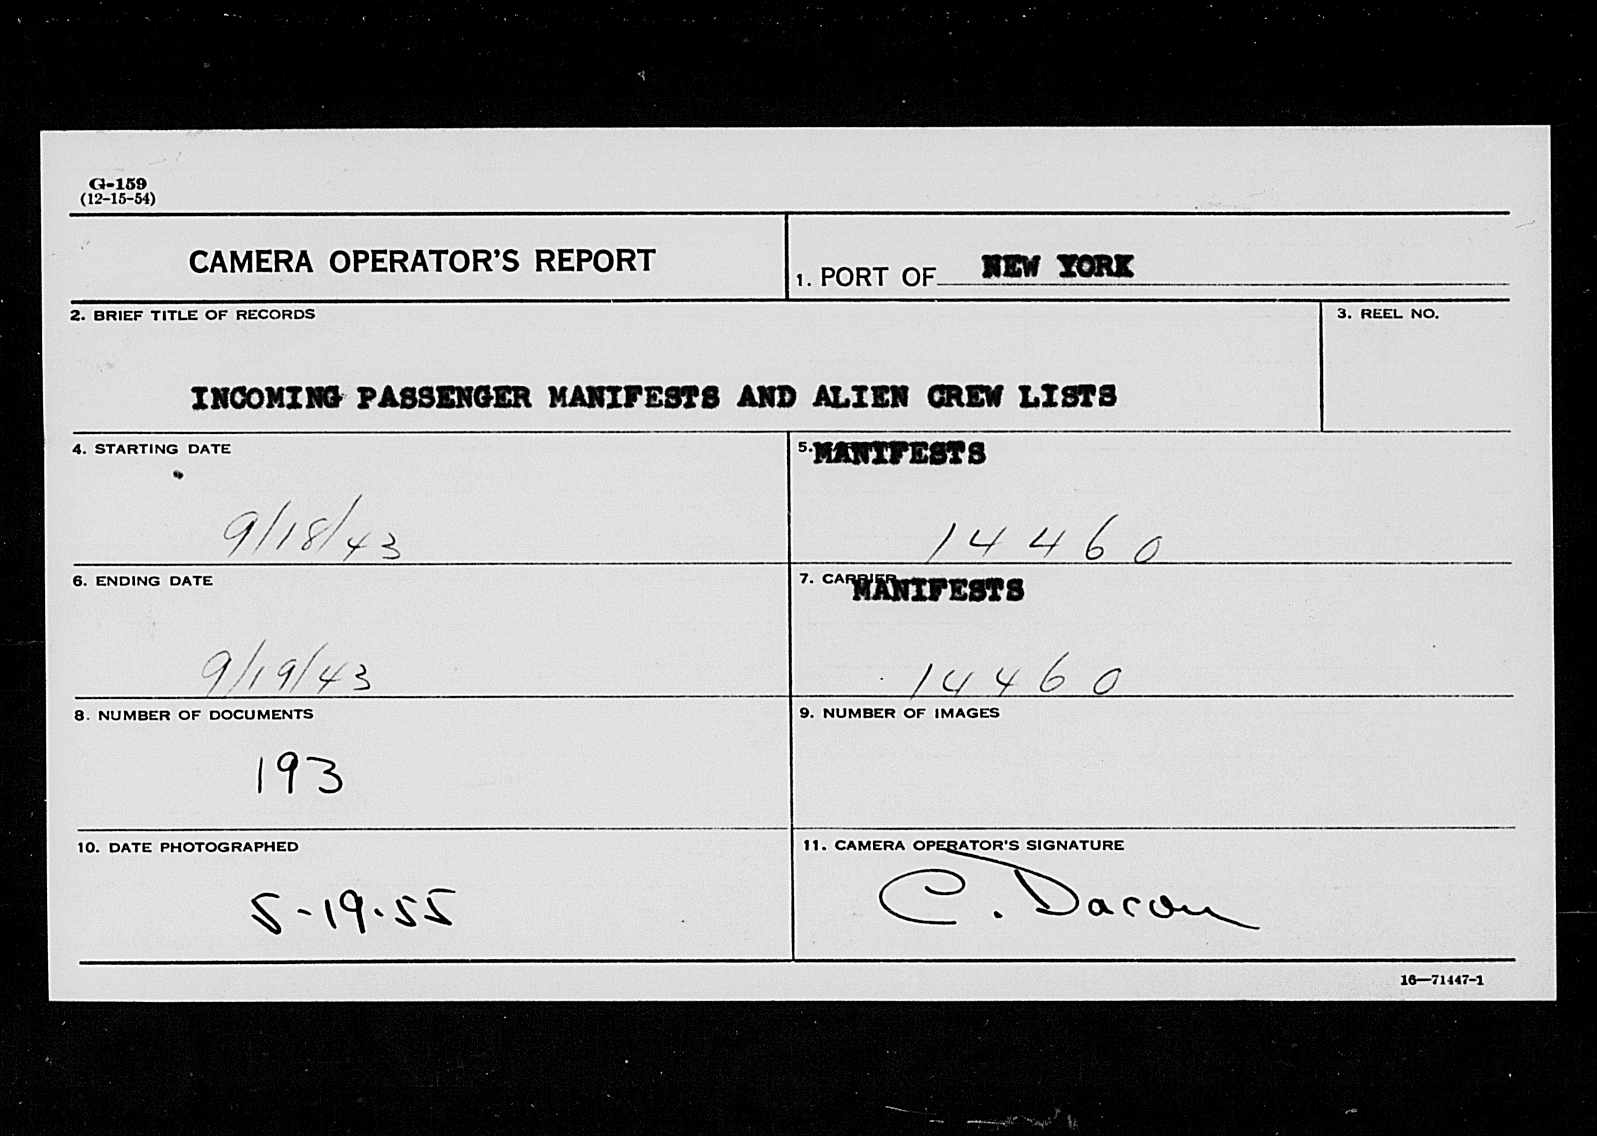 G-159
(12-15-54)
CAMERA OPERATOR'S REPORT
1. PORT OF NEW YORK
2. BRIEF TITLE OF RECORDS
3. REEL NO.
INCOMING PASSENGER MANIFESTS AND ALIEN CREW LISTS
4. STARTING DATE
5. MANIFESTS
9/18/43
14460
6. ENDING DATE
7. CARRIER MANIFESTS
9/19/43
14460
8. NUMBER OF DOCUMENTS
9. NUMBER OF IMAGES
193
10. DATE PHOTOGRAPHED
11. CAMERA OPERATOR'S SIGNATURE
5-19-55
C. Dacou
16—71447-1